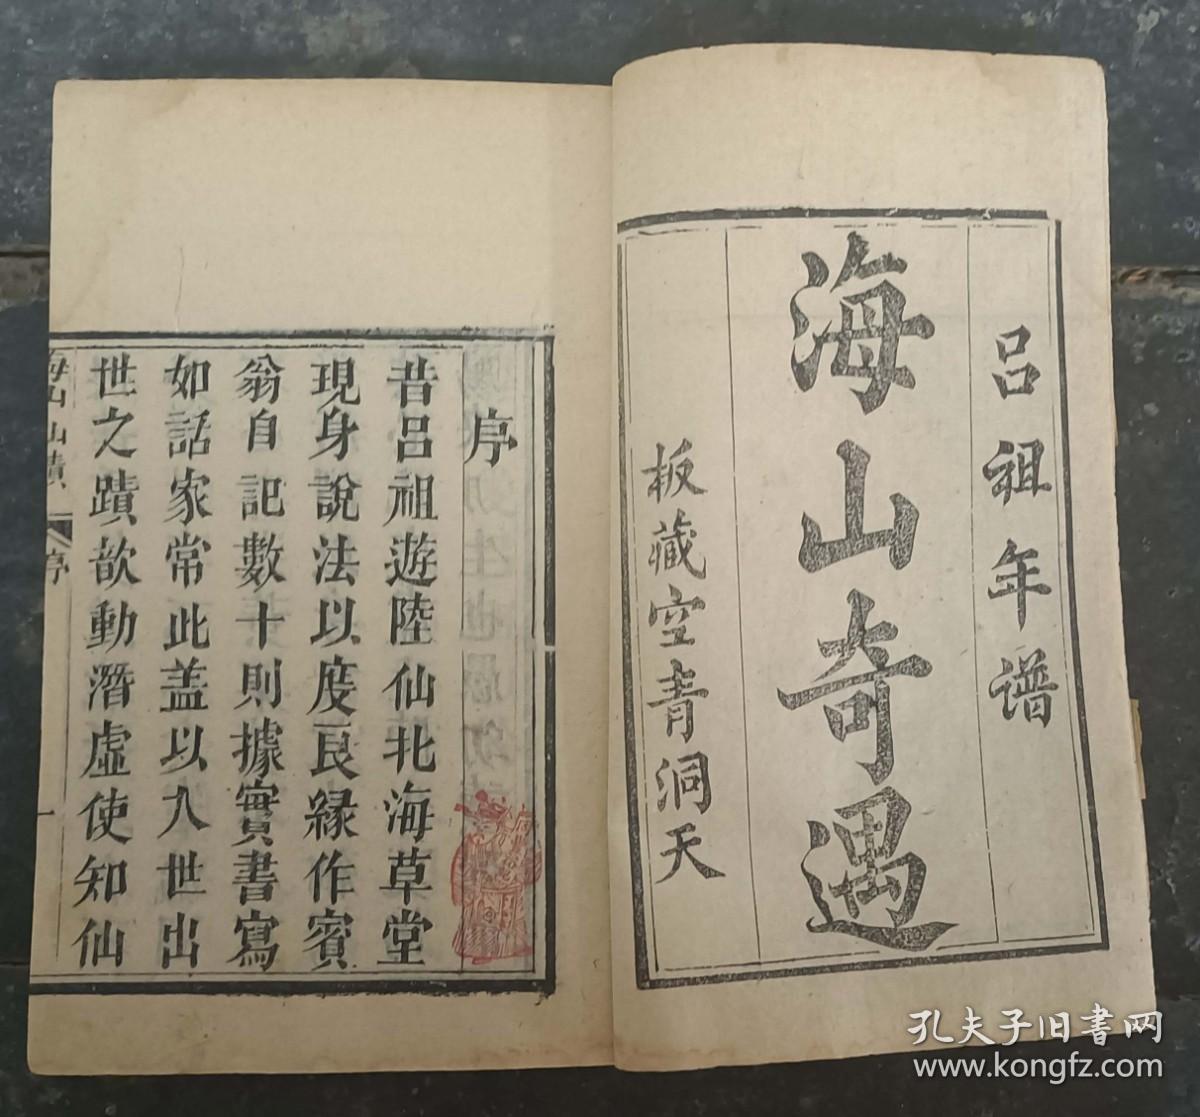 吕祖年谱
海山奇遇
板藏空青洞天
序
昔呂祖遊陸仙北海草堂
現身說法以度良緣作賓
翁自記數十則據實書寫
如話家常此盖以入世出
世之蹟歆動潛虛使知仙
序
一
孔夫子旧書网
www.kongfz.com